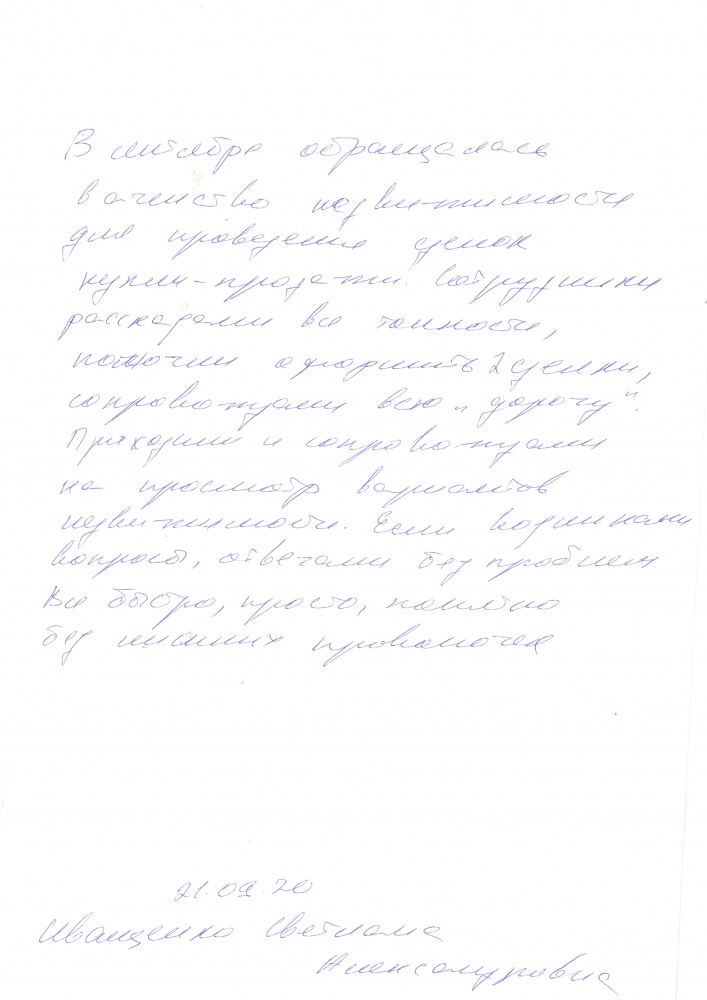 В сентябре обращалась
в агенство недвижимости
для проведения сделок
купли-продажи. Сотрудники
рассказали все тонкости,
помогли оформить 2 сделки,
сопровождали всю „дорогу".
Приходили и сопровождали
на просмотр вариантов
недвижимости. Если возникали
вопросы, отвечали без проблем
Все быстро, просто, понятно
без лишних проволочек
21.09.20
Иващенко Светлана
Александровна